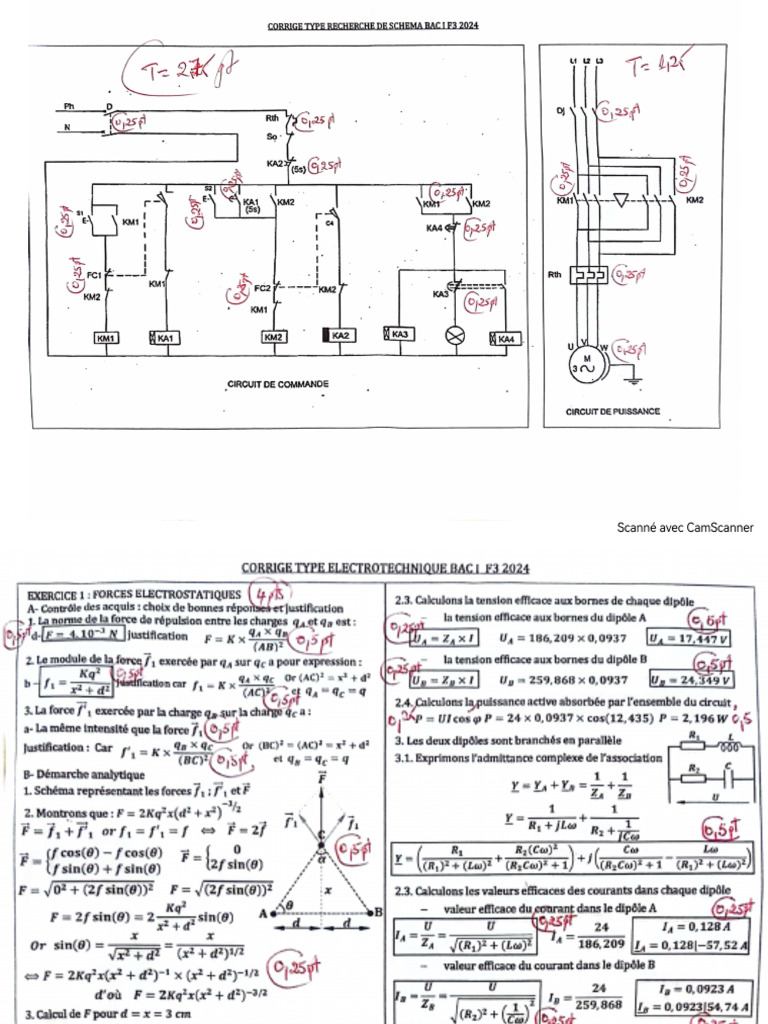 CORRIGE TYPE RECHERCHE DE SCHEMA BAC I F3 2024
T = 1,2
Ph D
0,25pt
N
Rth 0,25pt
So
KA2 (5s) 0,25pt
S1 E- KM1 0,25pt
S2 E- 0,25pt KA1 (5s) 0,25pt KM2
C4
KM1 0,25pt KM2
KA4 0,25pt
0,25pt
FC1
KM2
KM1
FC2 0,25pt
KM1
KM2
KA3
0,25pt
KM1 KA1 KM2 KA2 KA3 KA4
CIRCUIT DE COMMANDE
L1 L2 L3
Dj 0,25pt
0,25pt 0,25pt
KM1 KM2
Rth 0,25pt
U V W
M
3 ~
0,25pt
CIRCUIT DE PUISSANCE
Scanné avec CamScanner
CORRIGE TYPE ELECTROTECHNIQUE BAC I F3 2024
EXERCICE 1 : FORCES ELECTROSTATIQUES 4 pts
A- Contrôle des acquis : choix de bonnes réponses et justification
1. La norme de la force de répulsion entre les charges q_A et q_B est :
0,5pt d- F = 4.10⁻³ N Justification F = K × (q_A × q_B)/(AB)² 0,5pt
2. Le module de la force f⃗₁ exercée par q_A sur q_C a pour expression :
b – f₁ = Kq²/(x² + d²) 0,5pt Justification car f₁ = K × (q_A × q_C)/(AC)² Or (AC)² = x² + d² et q_A = q_C = q
0,5pt
3. La force f⃗'₁ exercée par la charge q_B sur la charge q_C a :
a- La même intensité que la force f⃗₁ 0,5pt
Justification : Car f'₁ = K × (q_B × q_C)/(BC)² 0,5pt Or (BC)² = (AC)² = x² + d² et q_B = q_C = q
B- Démarche analytique
1. Schéma représentant les forces f⃗₁ ; f⃗'₁ et F⃗
F⃗
2. Montrons que : F = 2Kq²x(d² + x²)^(-3/2)
f⃗'₁ f⃗₁
F⃗ = f⃗₁ + f⃗'₁ or f₁ = f'₁ = f ⇔ F⃗ = 2f⃗
C
α
0,5pt
F⃗ = {f cos(θ) − f cos(θ) F⃗ = {0
{f sin(θ) + f sin(θ) {2f sin(θ)
F = √(0² + (2f sin(θ))²) F = √((2f sin(θ))²)
x
F = 2f sin(θ) = 2 Kq²/(x² + d²) sin(θ)
A θ B
d d
Or sin(θ) = x/√(x² + d²) = x/(x² + d²)^(1/2)
⇔ F = 2Kq²x(x² + d²)⁻¹ × (x² + d²)^(-1/2) 0,25pt
d'où F = 2Kq²x(x² + d²)^(-3/2)
3. Calcul de F pour d = x = 3 cm
2.3. Calculons la tension efficace aux bornes de chaque dipôle
– la tension efficace aux bornes du dipôle A
0,25pt U_A = Z_A × I U_A = 186,209 × 0,0937 U_A = 17,447 V 0,5pt
– la tension efficace aux bornes du dipôle B
0,25pt U_B = Z_B × I U_B = 259,868 × 0,0937 U_B = 24,349 V 0,5pt
2.4. Calculons la puissance active absorbée par l'ensemble du circuit ,
P = UI cos φ P = 24 × 0,0937 × cos(12,435) P = 2,196 W 0,5
3. Les deux dipôles sont branchés en parallèle
R₁ L
3.1. Exprimons l'admittance complexe de l'association
R₂ C
Y = Y_A + Y_B = 1/Z_A + 1/Z_B
U
Y = 1/(R₁ + jLω) + 1/(R₂ + 1/(jCω))
0,5pt
Y = (R₁/((R₁)² + (Lω)²) + R₂(Cω)²/((R₂Cω)² + 1)) + j(Cω/((R₂Cω)² + 1) − Lω/((R₁)² + (Lω)²))
2.3. Calculons les valeurs efficaces des courants dans chaque dipôle
– valeur efficace du courant dans le dipôle A 0,25pt
0,25pt
I_A = U/Z_A = U/√((R₁)² + (Lω)²) I_A = 24/186,209 I_A = 0,128 A
I_A = 0,128|−57,52 A
– valeur efficace du courant dans le dipôle B
I_B = U/Z_B = U/√((R₂)² + (1/Cω)²) I_B = 24/259,868 I_B = 0,0923 A
I_B = 0,0923|54,74 A
0,25pt